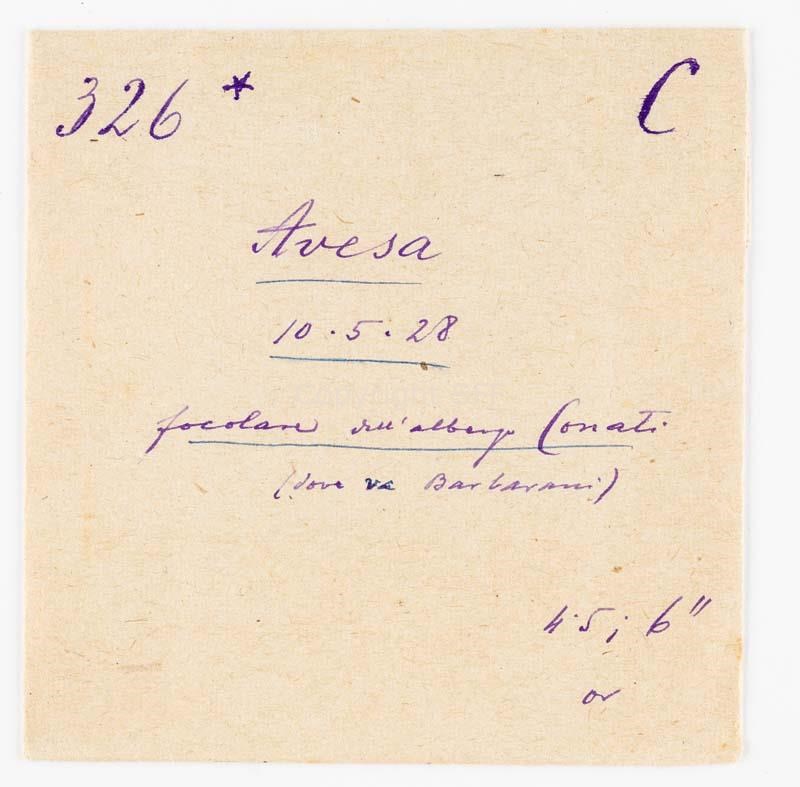 326 * C
Avesa
10.5.28
focolare dell'albergo Conati
(dove va Barbarani)
4.5; 6"
or